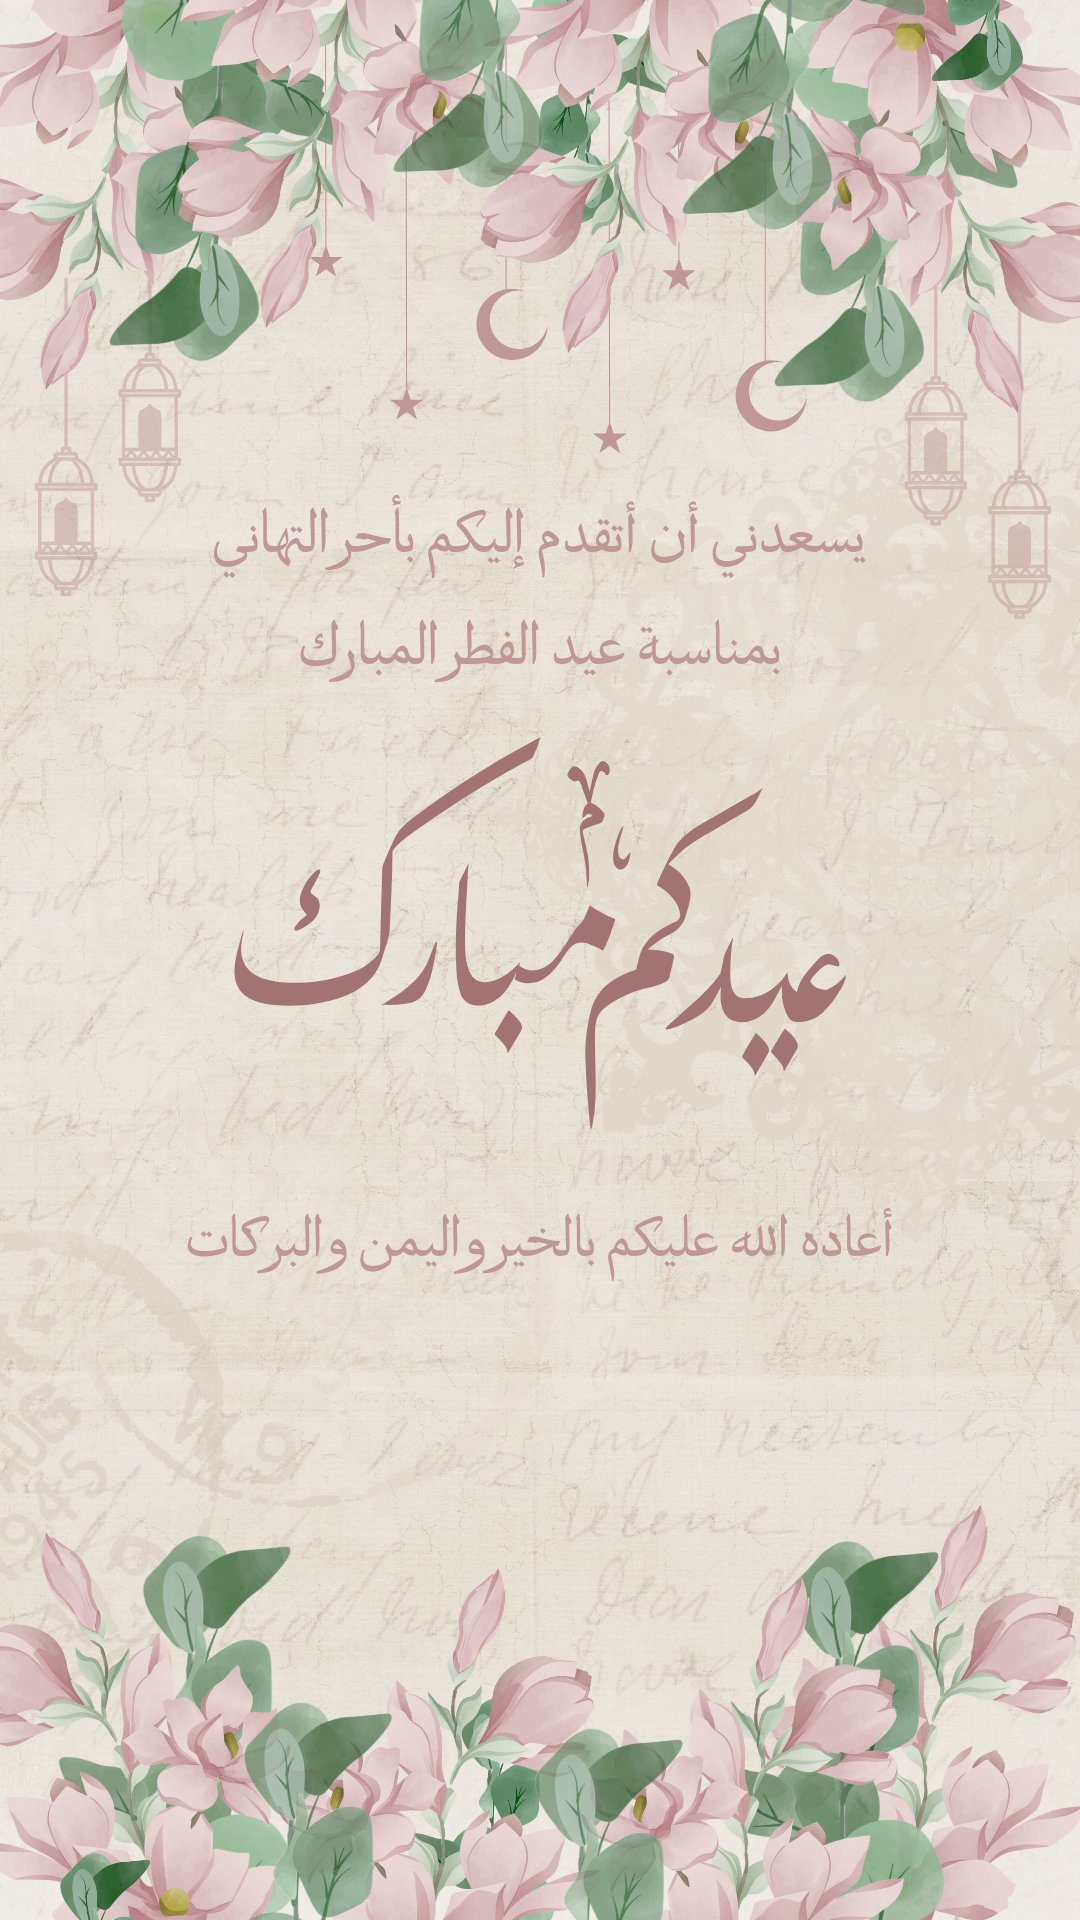 يسعدني أن أتقدم إليكم بأحر التهاني
بمناسبة عيد الفطر المبارك
عيدكم مبارك
أعاده الله عليكم بالخير واليمن والبركات